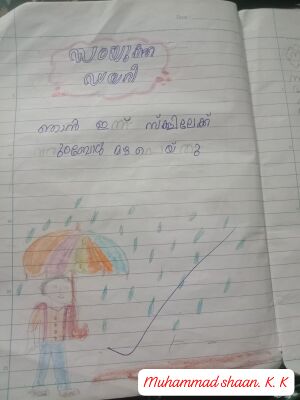 സരയുടെ
ഡയറി
ഞാൻ ഇന്ന് സ്കൂളിലേക്ക്
മഴ പെയ്തു
Muhammad shaan. K. K